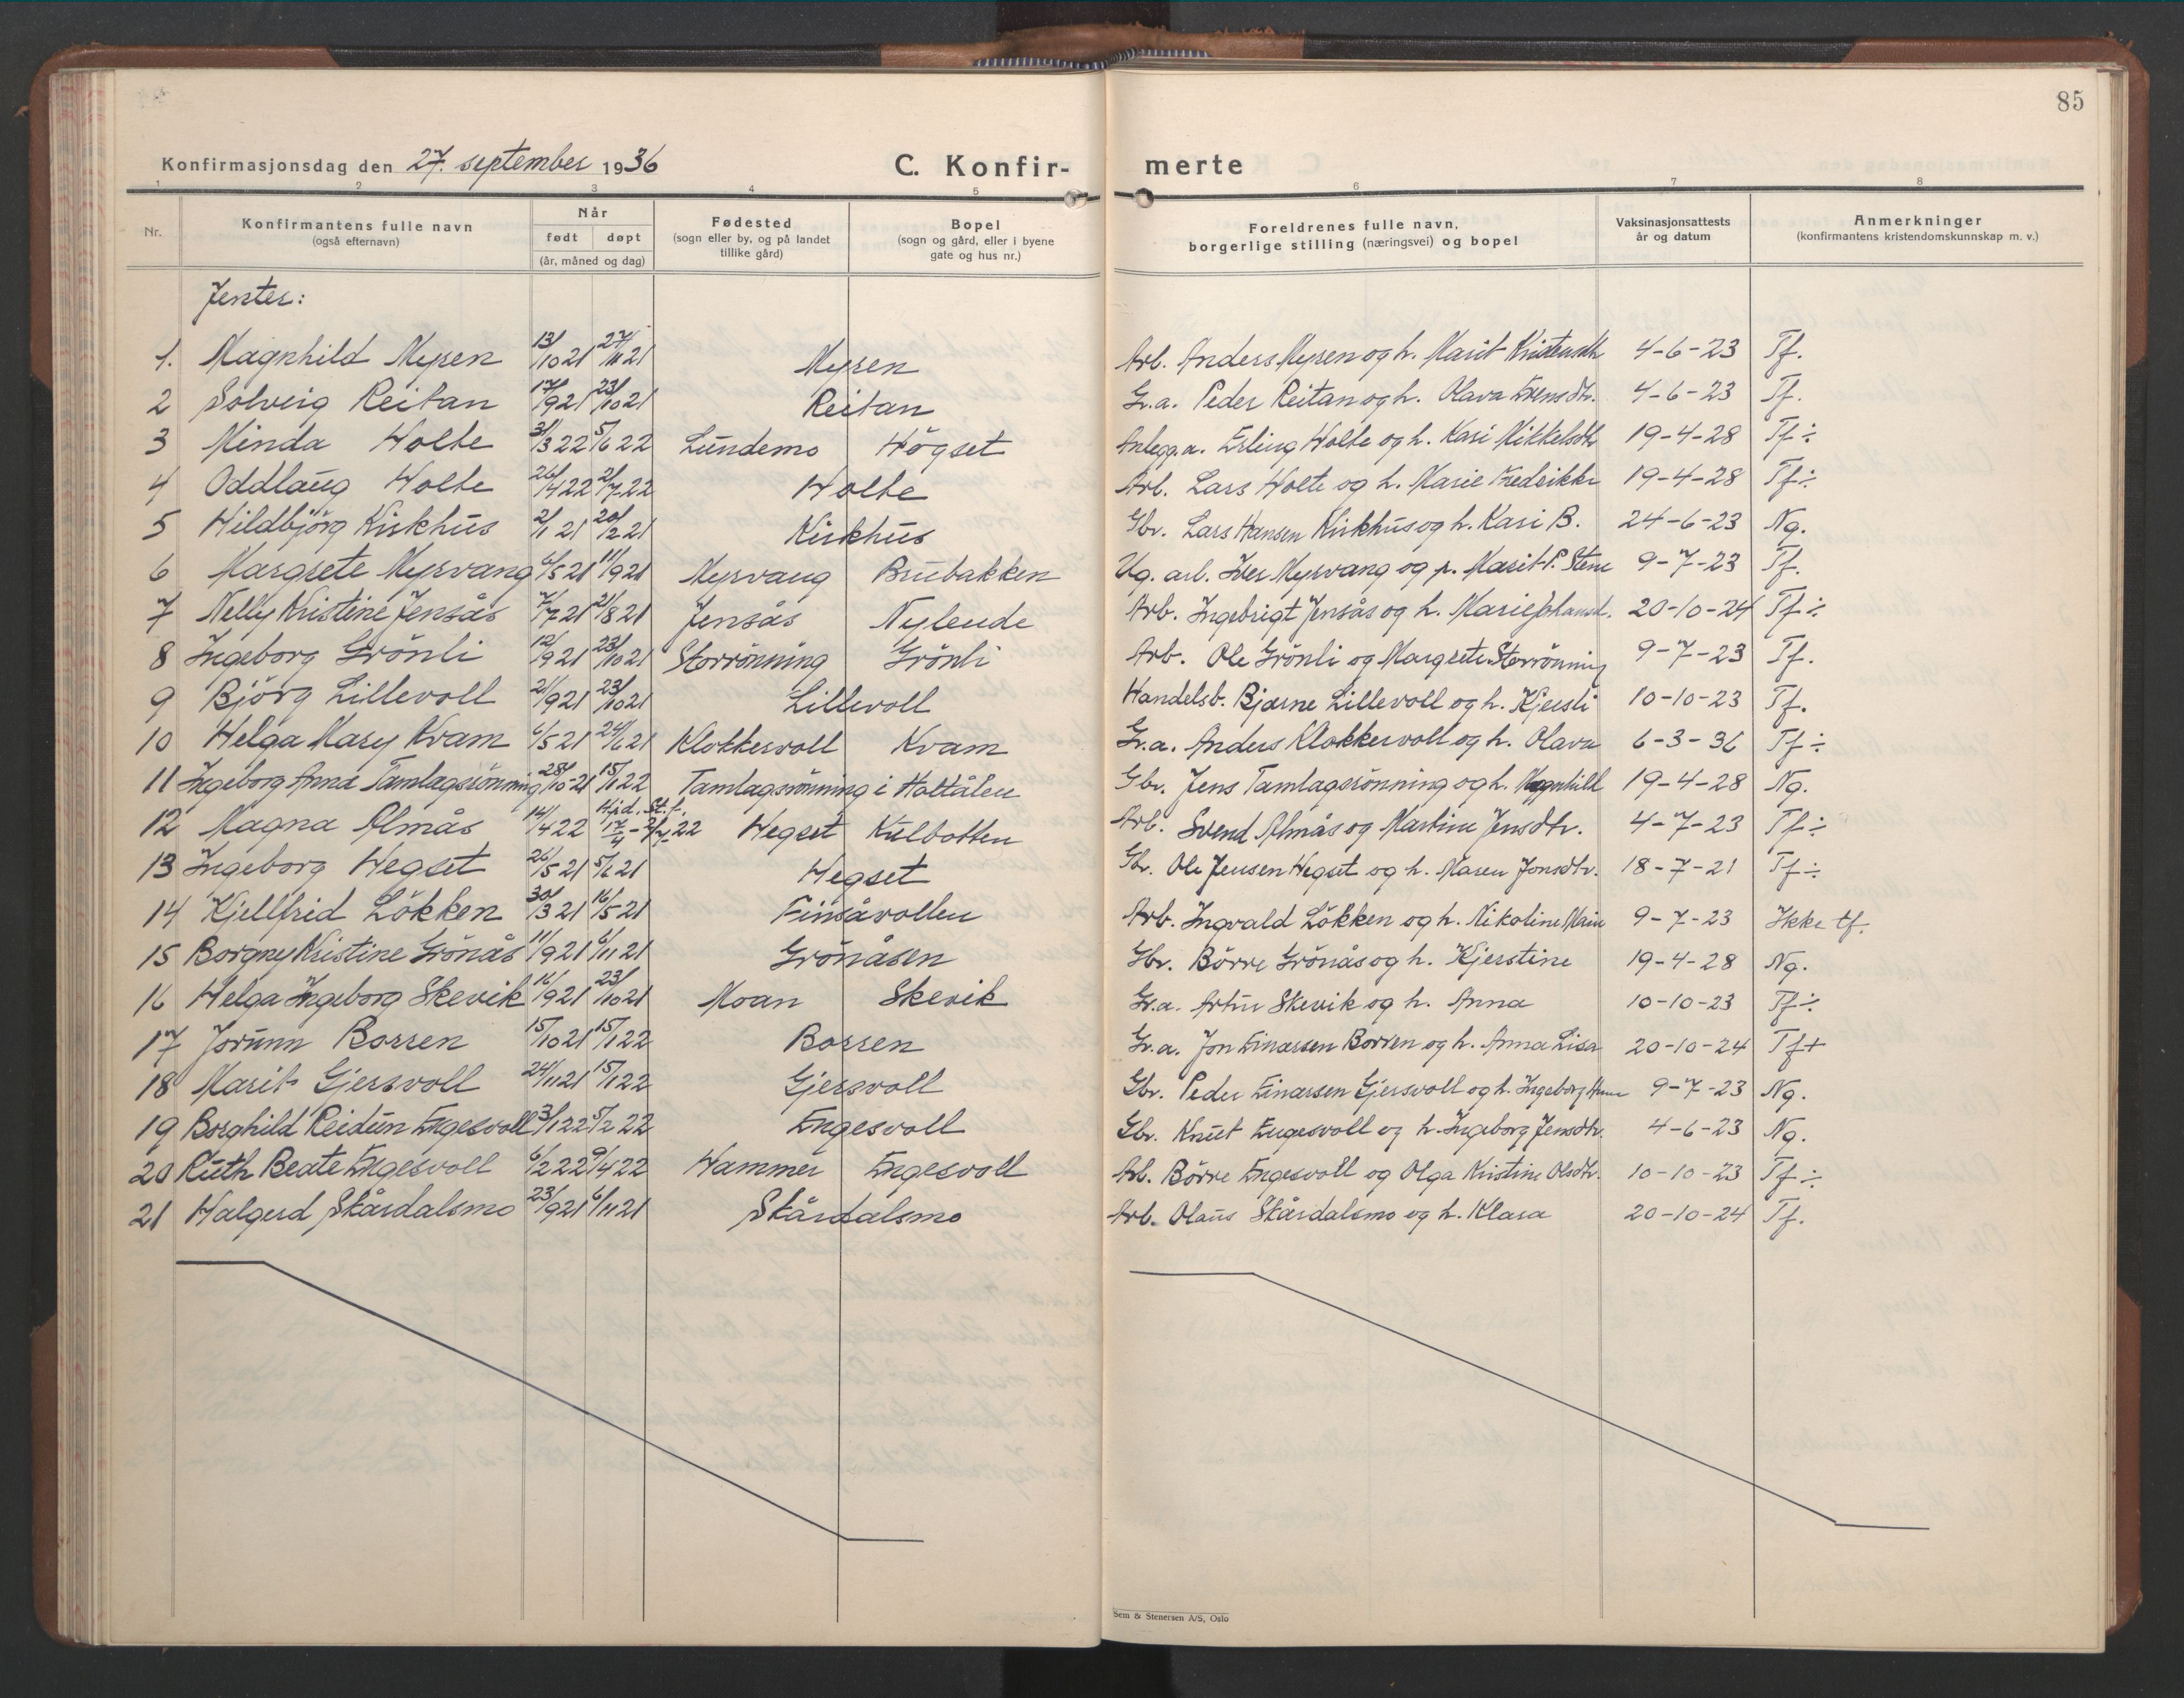 85
Konfirmasjonsdag den 27. september 1936 C. Konfir- merte
1 2 3 4 5 6 7 8
Nr. Konfirmantens fulle navn (også efternavn) Når født døpt (år, måned og dag) Fødested (sogn eller by, og på landet tillike gård) Bopel (sogn og gård, eller i byene gate og hus nr.) Foreldrenes fulle navn, borgerlige stilling (næringsvei) og bopel Vaksinasjonsattests år og datum Anmerkninger (konfirmantens kristendomskunnskap m. v.)
Jenter:
1. Magnhild Myren 13/10 21 27/11 21 Myren Arb. Anders Myren og h. Marit Kristensdtr 4-6-23 Tf.
2 Solveig Reitan 17/9 21 23/10 21 Reitan Gr.a. Peder Reitan og h. Olava Evensdtr. 4-6-23 Tf.
3 Minda Holte 31/3 22 5/6 22 Lundemo Högset Anlegg.a. Erling Holte og h. Kari Mikkelsdtr 19-4-28 Tf ÷
4 Oddlaug Holte 26/4 22 2/7 22 Holte Arb. Lars Holte og h. Marie Fredrikke 19-4-28 Tf ÷
5 Hildbjörg Kirkhus 2/1 21 20/2 21 Kirkhus Gbr. Lars Hansen Kirkhus og h. Kari B. 24-6-23 Ng.
6 Margrete Myrvang 6/5 21 11/9 21 Myrvang Brubakken Ug. arb. Iver Myrvang og p. Marit P. Stene 9-7-23 Tf.
7 Nelly Kristine Jensås 7/7 21 21/8 21 Jensås Nylende Arb. Ingebrigt Jensås og h. Marie Johansd. 20-10-24 Tf ÷
8 Ingeborg Grönli 12/9 21 23/10 21 Storrönning Grönli Arb. Ole Grönli og Margrete Storrönning 9-7-23 Tf.
9 Björg Lillevoll 21/9 21 23/10 21 Lillevoll Handelsb. Bjarne Lillevoll og h. Kjersti 10-10-23 Tf.
10 Helga Mary Kvam 6/5 21 24/6 21 Klokkervoll Kvam Gr.a. Anders Klokkervoll og h. Olava 6-3-36 Tf ÷
11 Ingeborg Anna Tamlagsrönning 28/10-21 15/1 22 Tamlagsrönning i Haltålen Gbr. Jens Tamlagsrönning og h. Magnhild 19-4-28 Ng.
12 Magna Almås 14/4 22 Hjd. St. f. 17/4 - 2/7 22 Hegset Kulbotten Arb. Svend Almås og Martine Jensdtr. 4-7-23 Tf ÷
13 Ingeborg Hegset 26/5 21 5/6 21 Hegset Gbr. Ole Jensen Hegset og h. Maren Jonsdtr. 18-7-21 Tf ÷
14 Kjellfrid Lökken 30/3 21 16/5 21 Finsåvollen Arb. Ingvald Lökken og h. Nikoline Marie 9-7-23 Ikke tf.
15 Borgny Kristine Grönås 11/9 21 6/11 21 Grönåsen Gbr. Börre Grönås og h. Kjerstine 19-4-28 Ng.
16 Helga Ingeborg Skevik 16/9 21 23/10 21 Moan Skevik Gr.a. Artur Skevik og h. Anna 10-10-23 Tf ÷
17 Jorunn Borren 15/10 21 15/1 22 Borren Gr.a. Jon Einarsen Borren og h. Anna Lisa 20-10-24 Tf +
18 Marit Gjersvoll 24/11 21 15/1 22 Gjersvoll Gbr. Peder Einarsen Gjersvoll og h. Ingeborg Anna 9-7-23 Ng.
19 Borghild Reidun Engesvoll 3/1 22 5/2 22 Engesvoll Gbr. Knut Engesvoll og h. Ingeborg Jensdtr. 4-6-23 Ng.
20 Ruth Beate Engesvoll 6/2 22 9/4 22 Hammer Engesvoll Arb. Börre Engesvoll og Olga Kristine Olsdtr. 10-10-23 Tf ÷
21 Halgerd Skårdalsmo 23/9 21 6/11 21 Skårdalsmo Arb. Olaus Skårdalsmo og h. Klara 20-10-24 Tf.
Sem & Stenersen A/S, Oslo